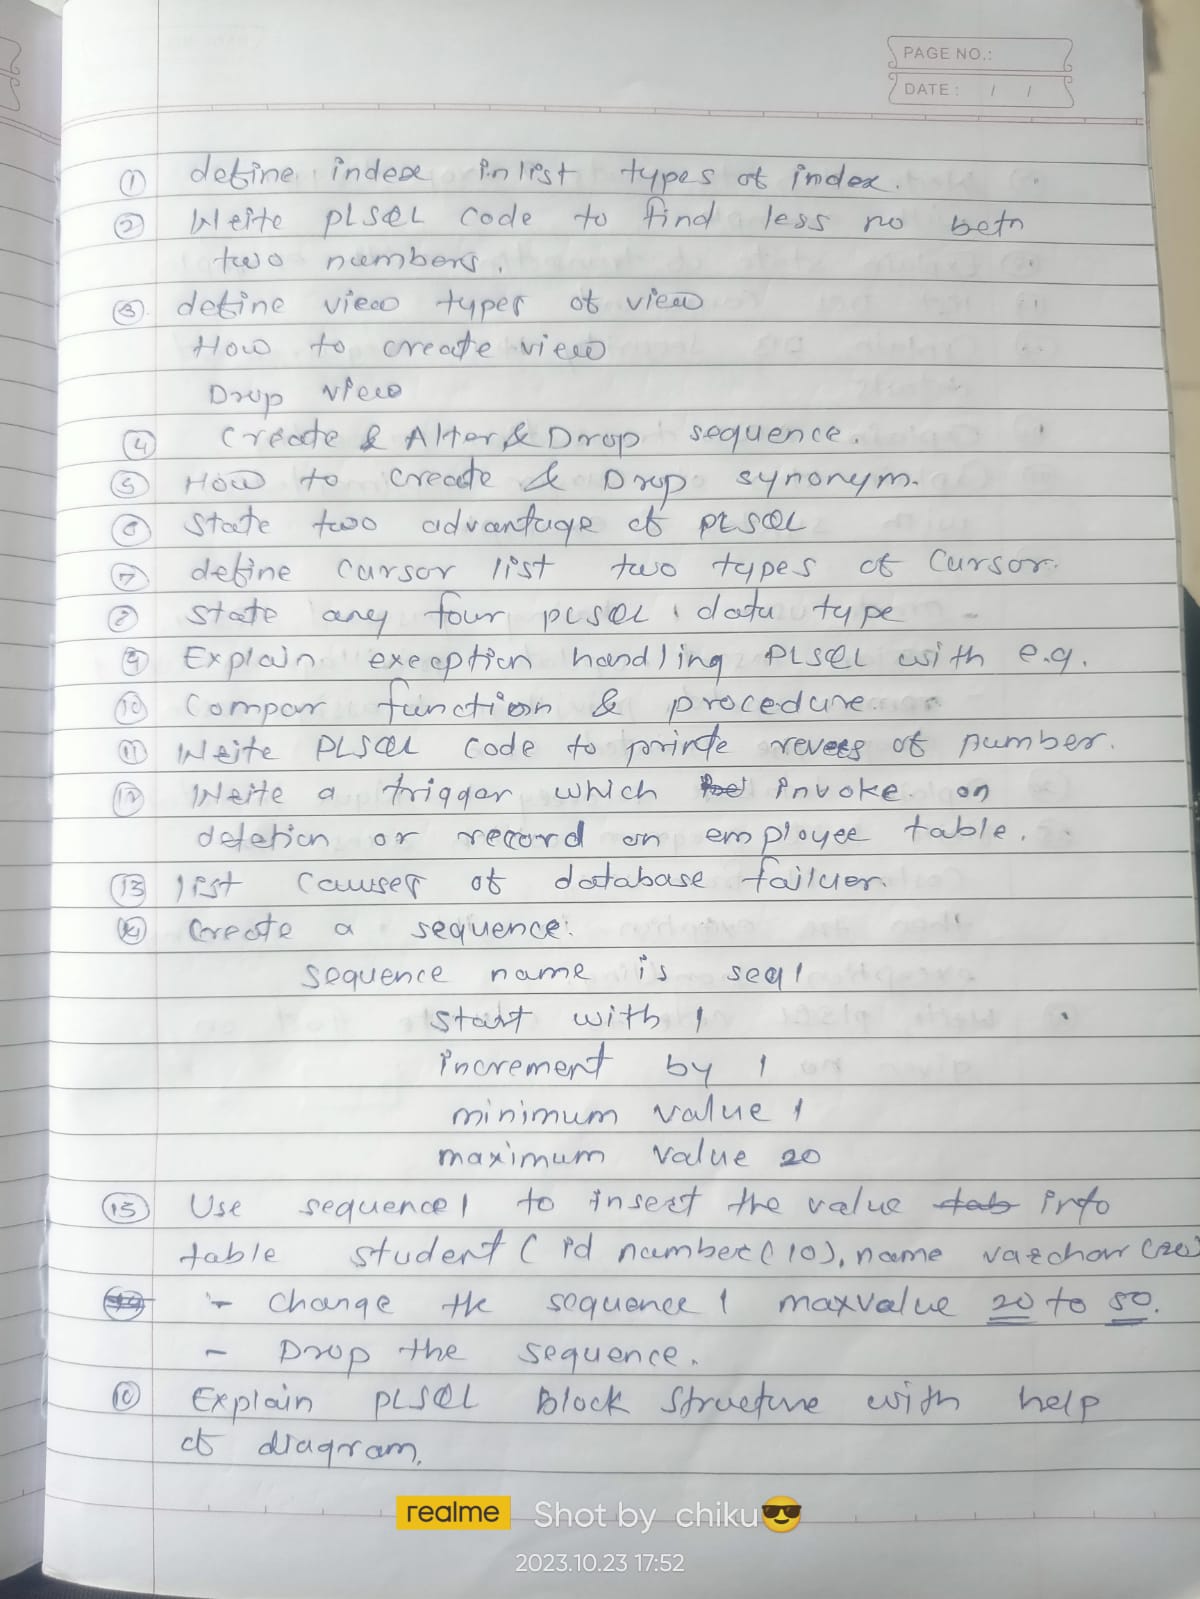 PAGE NO.:
DATE: / /
① define index in list types of index.
② Write PLSQL code to find less no betn
two numbers.
③ define view types of view
How to create view
Drop view
④ Create & Alter & Drop sequence.
⑤ How to create & Drop synonym.
⑥ State two advantage of PLSQL
⑦ define cursor list two types of Cursor.
⑧ State any four PLSQL data type
⑨ Explain exception handling PLSQL with e.g.
⑩ Compar function & procedure.
⑪ Write PLSQL code to printe revees of number.
⑫ Write a trigger which invoke on
deletion or record on employee table.
⑬ list causes of database failuer.
⑭ Create a sequence:
sequence name is seq1
start with 1
increment by 1
minimum value 1
maximum value 20
⑮ Use sequence1 to insert the value into
table student (id number(10), name varchar(20)
- Change the sequence 1 maxvalue 20 to 50.
- Drop the sequence.
⑯ Explain PLSQL Block structure with help
of diagram.
realme Shot by chiku😎
2023.10.23 17:52